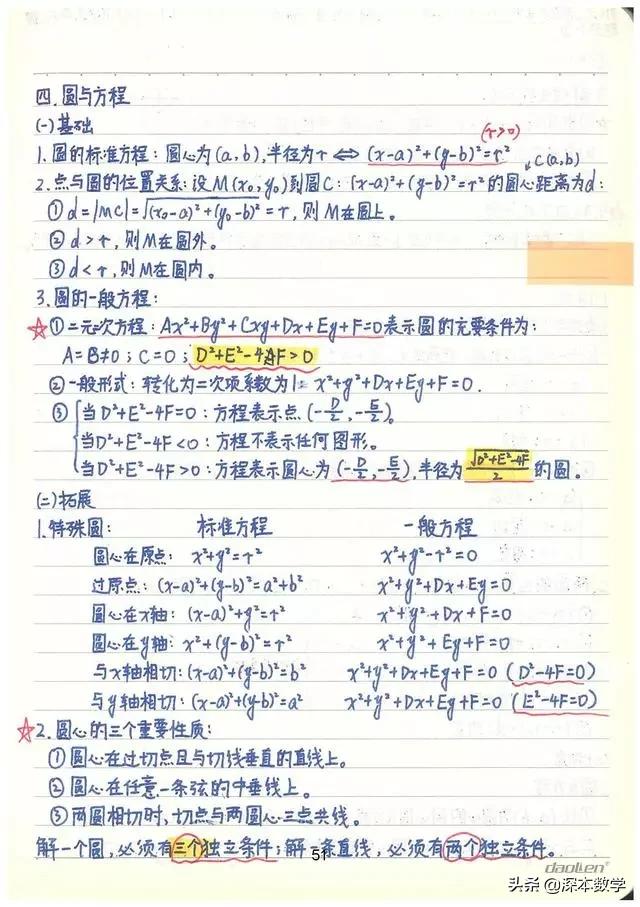 四. 圆与方程
(一) 基础
(r>0)
1. 圆的标准方程: 圆心为(a,b), 半径为r ⇔ (x-a)²+(y-b)²=r²
C(a,b)
2. 点与圆的位置关系: 设M(x₀,y₀)到圆C: (x-a)²+(y-b)²=r²的圆心距离为d:
① d=|MC|=√(x₀-a)²+(y₀-b)²=r, 则M在圆上。
② d>r, 则M在圆外。
③ d<r, 则M在圆内。
3. 圆的一般方程:
☆① 二元二次方程: Ax²+By²+Cxy+Dx+Ey+F=0表示圆的充要条件为:
A=B≠0; C=0; D²+E²-4AF>0
② 一般形式: 转化为二次项系数为1= x²+y²+Dx+Ey+F=0.
③ 当D²+E²-4F=0: 方程表示点(-D/2,-E/2)。
当D²+E²-4F<0: 方程不表示任何图形。
当D²+E²-4F>0: 方程表示圆心为(-D/2,-E/2), 半径为√D²+E²-4F/2的圆。
(二) 拓展
1. 特殊圆: 标准方程 一般方程
圆心在原点: x²+y²=r² x²+y²-r²=0
过原点: (x-a)²+(y-b)²=a²+b² x²+y²+Dx+Ey=0
圆心在x轴: (x-a)²+y²=r² x²+y²+Dx+F=0
圆心在y轴: x²+(y-b)²=r² x²+y²+Ey+F=0
与x轴相切: (x-a)²+(y-b)²=b² x²+y²+Dx+Ey+F=0 (D²-4F=0)
与y轴相切: (x-a)²+(y-b)²=a² x²+y²+Dx+Ey+F=0 (E²-4F=0)
☆2. 圆心的三个重要性质:
① 圆心在过切点且与切线垂直的直线上。
② 圆心在任意一条弦的中垂线上。
③ 两圆相切时, 切点与两圆心三点共线。
解一个圆, 必须有三个独立条件; 解一条直线, 必须有两个独立条件。
51
daolien
头条 @深本数学